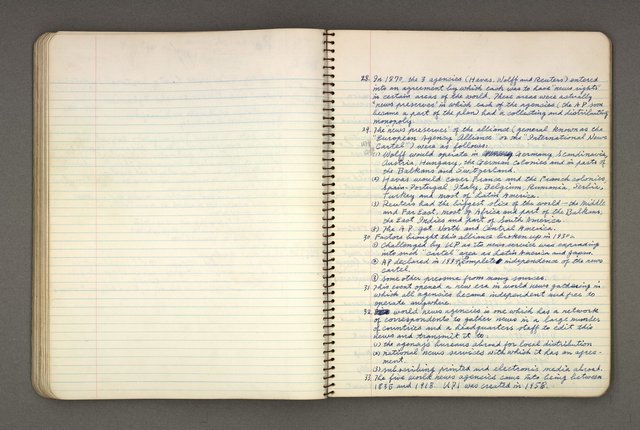 28. In 1870, the 3 agencies (Havas, Wolff and Reuters) entered
into an agreement by which each was to have "news rights"
in certain areas of the world. These areas were actually
"news preserves" in which each of the agencies (the A.P. soon
became a part of the plan) had a collecting and distributing
monopoly.
29. The news preserves of the alliance (general known as the
"European Agency Alliance" or the "International News
Cartel") were as follows:
(1) Wolff would operate in Germany, Scandinavia,
Austria, Hungary, the German colonies and in parts of
the Balkans and Switzerland.
(2) Havas would cover France and the French colonies,
Spain, Portugal, Italy, Belgium, Rumania, Serbia,
Turkey and most of Latin America.
(3) Reuters had the biggest slice of the world — the Middle
and Far East, most of Africa and part of the Balkans,
the East Indies and part of South America.
(4) The A.P. got North and Central America.
30. Factors brought this alliance broken up in 1930s.
① Challenged by U.P. as its news service was expanding
into such "cartel" area as Latin America and Japan.
② AP declared in 1934 complete independence of the news
cartel.
③ Some other pressure from many sources.
31. This event opened a new era in world news gathering in
which all agencies became independent and free to
operate anywhere.
32. world news agencies is one which has a network
of correspondents to gather news in a large number
of countries and a headquarters staff to edit this
news and transmit it to:
(1) the agency's bureaus abroad for local distribution
(2) national news services with which it has an agree-
ment.
(3) subscribing printed and electronic media abroad.
33. The five world news agencies came into being between
1835 and 1918. UPI was created in 1958.